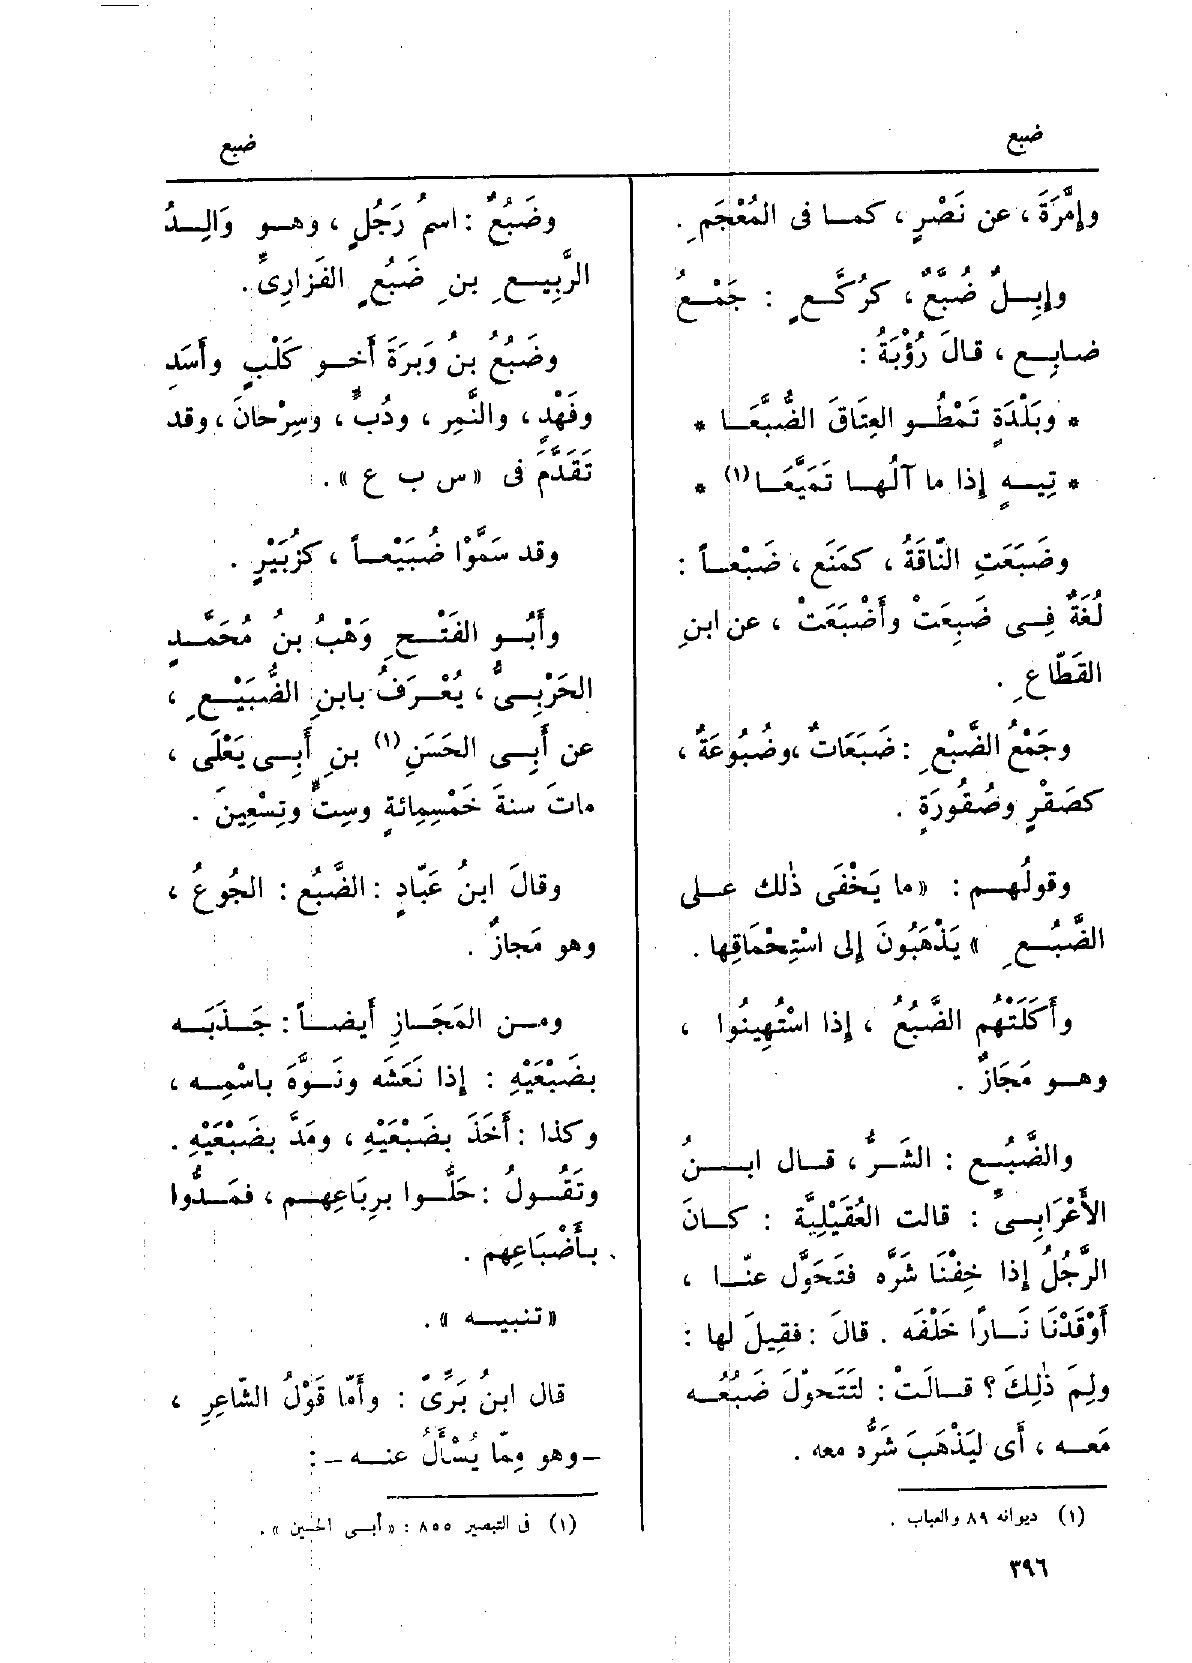 ضبع
ضبع
وإمَّرَةَ ، عن نَصْرٍ ، كمـا فى المُعْجَمِ .
وإبِــلٌ ضُبَّعٌ ، كرُكَّــعٍ : جَمْــعُ
ضـابِــع ، قـالَ رُؤْبَةُ :
* وبَلْدَةٍ تَمْطُــو العِتَاقَ الضُّبَّعَــا *
* تِيــهٍ إذا ما آلُهــا تَمَيَّعَــا (١) *
وضَبَعَتِ النَّاقَةُ ، كمَنَع ، ضَبْعــاً :
لُغَةٌ فِــى ضَبِعَتْ وأَضْبَعَتْ ، عن ابنِ
القَطَّاعِ .
وجَمْعُ الضَّبْعِ : ضَبَعَاتٌ ،وضُبُوعَةٌ ،
كصَقْرٍ وصُقُورَةٍ .
وقولُهــم : «ما يَخْفَى ذٰلك علــى
الضَّبُــعِ » يَذْهَبُونَ إلى اسْتِحْمَاقِها .
وأَكَلَتْهُم الضَّبُعُ ، إذا اسْتُهِينُوا ،
وهــو مَجَازٌ .
والضَّبُــع : الشَّرُّ ، قــال ابــنُ
الأَعْرَابِــىِّ : قالت العُقَيْلِيَّة : كــانَ
الرَّجُلُ إذا خِفْنَا شَرَّه فتَحَوَّل عنّــا ،
أَوْقَدْنَا نَــارًا خَلْفَه . قالَ : فقِيلَ لها :
ولِمَ ذٰلِكَ ؟ قــالَتْ : لتَتَحوّلَ ضَبُعُــه
مَعــه ، أَى ليَذْهَبَ شَرُّه معه .
(١) ديوانه ٨٩ والعباب .
٣٩٦
وضَبُعٌ : اسمُ رَجُلٍ ، وهــو وَالِــدُ
الرَّبِيــعِ بنِ ضَبُعٍ الفَزارِىِّ .
وضَبُعُ بنُ وَبَرَةَ أَخــو كَلْبٍ وأَسَدِ
وفَهْدٍ ، والنَّمِرِ ، ودُبٍّ ، وسِرْحانَ ، وقد
تَقَدَّمَ فى «س ب ع » .
وقد سَمَّوْا ضُبَيْعــاً ، كزُبَيْرٍ .
وأَبُــو الفَتْــحِ وَهْبُ بنُ مُحَمَّــدٍ
الحَرْبِــىُّ ، يُعْــرَفُ بابنِ الضُّبَيْــعِ ،
عن أَبِــى الحَسَنِ (١) بنِ أَبِــى يَعْلَى ،
ماتَ سنةَ خَمْسِمِائةٍ وسِتٍّ وتِسْعِينَ .
وقالَ ابنُ عَبّادٍ : الضَّبُع : الجُوعُ ،
وهو مَجازٌ .
ومــن المَجَــازِ أَيضــاً : جَــذَبَــه
بضَبْعَيْهِ : إذا نَعَشَه ونَــوَّهَ باسْمِــه ،
وكذا : أَخَذَ بضَبْعَيْهِ ، ومَدَّ بضَبْعَيْهِ .
وتَقُــولُ : حَلُّــوا برِبَاعِهــم ، فمَــدُّوا
بــأَضْبَاعِهم .
«تنبيــه » .
قال ابنُ بَرِّىّ : وأَمّا قَوْلُ الشّاعِرِ ،
–وهو مِمّا يُسْأَلُ عنــه – :
(١) فى التبصير ٨٥٥ : «أبــى الحسين » .